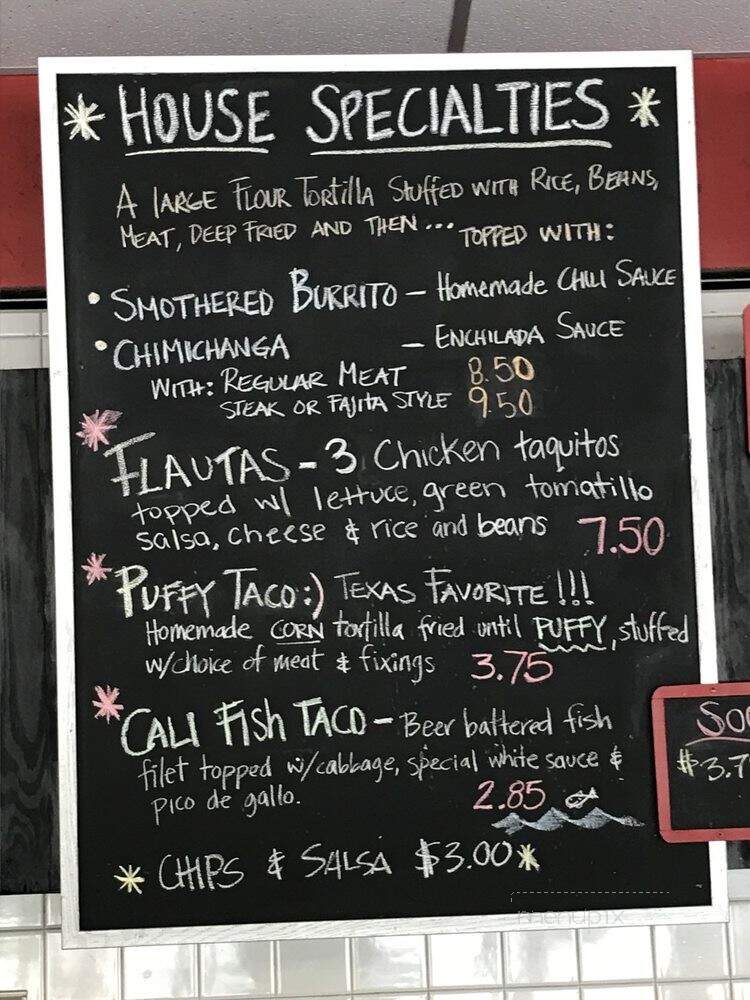 * HOUSE SPECIALTIES *
A LARGE FLOUR TORTILLA STUFFED WITH RICE, BEANS,
MEAT, DEEP FRIED AND THEN... TOPPED WITH:
• SMOTHERED BURRITO – Homemade CHILI SAUCE
• CHIMICHANGA – ENCHILADA SAUCE
WITH: REGULAR MEAT 8.50
STEAK OR FAJITA STYLE 9.50
* FLAUTAS - 3 Chicken taquitos
topped w/ lettuce, green tomatillo
salsa, cheese & rice and beans 7.50
* PUFFY TACO :) TEXAS FAVORITE!!!
Homemade CORN tortilla fried until PUFFY, stuffed
w/choice of meat & fixings 3.75
* CALI FISH TACO - Beer battered fish
filet topped w/cabbage, special white sauce &
pico de gallo. 2.85
* CHIPS & SALSA $3.00 *
menupix